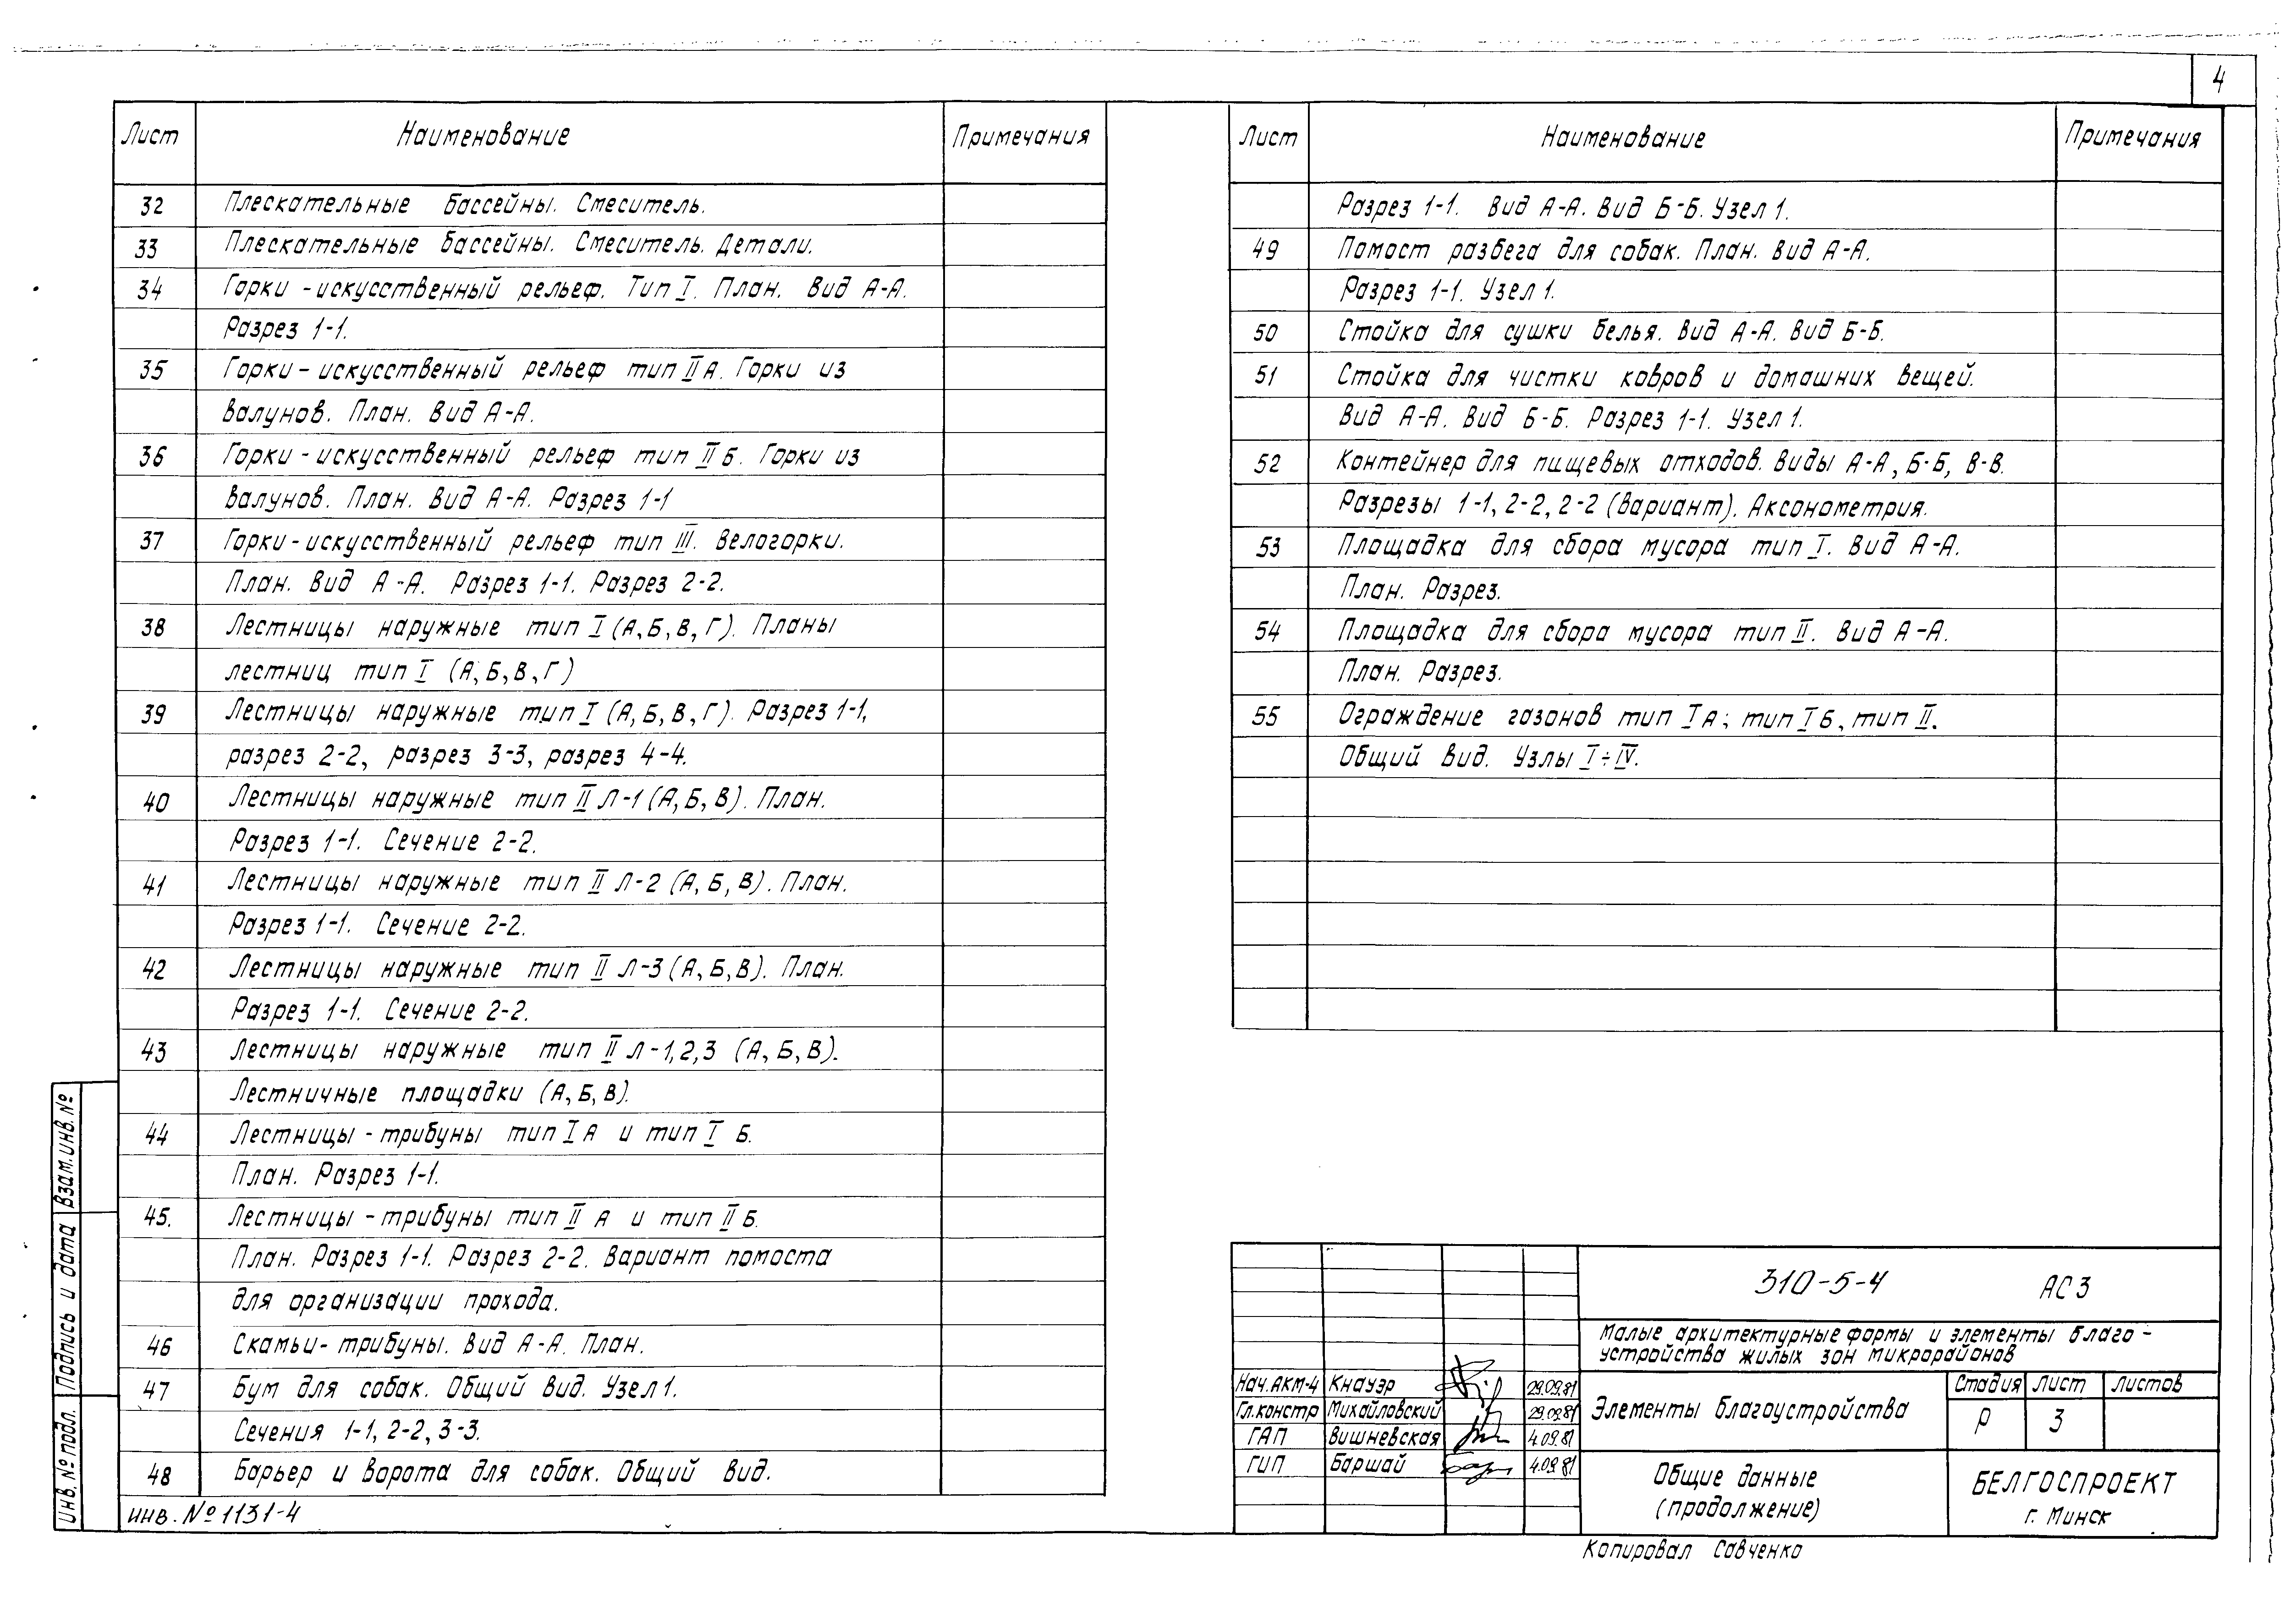 4
Лист Наименование Примечания
32 Плескательные бассейны. Смеситель.
33 Плескательные бассейны. Смеситель. Детали.
34 Горки-искусственный рельеф. Тип I. План. Вид А-А.
Разрез 1-1.
35 Горки-искусственный рельеф тип II А. Горки из
валунов. План. Вид А-А.
36 Горки-искусственный рельеф тип II Б. Горки из
валунов. План. Вид А-А. Разрез 1-1
37 Горки-искусственный рельеф тип III. Велогорки.
План. Вид А-А. Разрез 1-1. Разрез 2-2.
38 Лестницы наружные тип I (А, Б, В, Г). Планы
лестниц тип I (А, Б, В, Г)
39 Лестницы наружные тип I (А, Б, В, Г). Разрез 1-1,
разрез 2-2, разрез 3-3, разрез 4-4.
40 Лестницы наружные тип II Л-1 (А, Б, В). План.
Разрез 1-1. Сечение 2-2.
41 Лестницы наружные тип II Л-2 (А, Б, В). План.
Разрез 1-1. Сечение 2-2.
42 Лестницы наружные тип II Л-3 (А, Б, В). План.
Разрез 1-1. Сечение 2-2.
43 Лестницы наружные тип II Л-1,2,3 (А, Б, В).
Лестничные площадки (А, Б, В).
44 Лестницы-трибуны тип I А и тип I Б.
План. Разрез 1-1.
45. Лестницы-трибуны тип II А и тип II Б.
План. Разрез 1-1. Разрез 2-2. Вариант помоста
для организации прохода.
46 Скамьи-трибуны. Вид А-А. План.
47 Бум для собак. Общий вид. Узел 1.
Сечения 1-1, 2-2, 3-3.
48 Барьер и ворота для собак. Общий вид.
Лист Наименование Примечания
Разрез 1-1. Вид А-А. Вид Б-Б. Узел 1.
49 Помост разбега для собак. План. Вид А-А.
Разрез 1-1. Узел 1.
50 Стойка для сушки белья. Вид А-А. Вид Б-Б.
51 Стойка для чистки ковров и домашних вещей.
Вид А-А. Вид Б-Б. Разрез 1-1. Узел 1.
52 Контейнер для пищевых отходов. Виды А-А, Б-Б, В-В.
Разрезы 1-1, 2-2, 2-2 (вариант). Аксонометрия.
53 Площадка для сбора мусора тип I. Вид А-А.
План. Разрез.
54 Площадка для сбора мусора тип II. Вид А-А.
План. Разрез.
55 Ограждение газонов тип I А; тип I Б, тип II.
Общий вид. Узлы I÷IV.
310-5-4 АС3
Малые архитектурные формы и элементы благо-
устройства жилых зон микрорайонов
Нач.АКМ-4 Кнауэр 29.09.81
Гл.констр Михайловский 29.09.81
ГАП Вишневская 4.09.81
ГИП Баршай 4.09.81
Элементы благоустройства
Стадия Лист Листов
Р 3
Общие данные
(продолжение)
БЕЛГОСПРОЕКТ
г. Минск
Копировал Савченко
Взам.инв.№
Подпись и дата
Инв.№подл.
инв. №1131-4